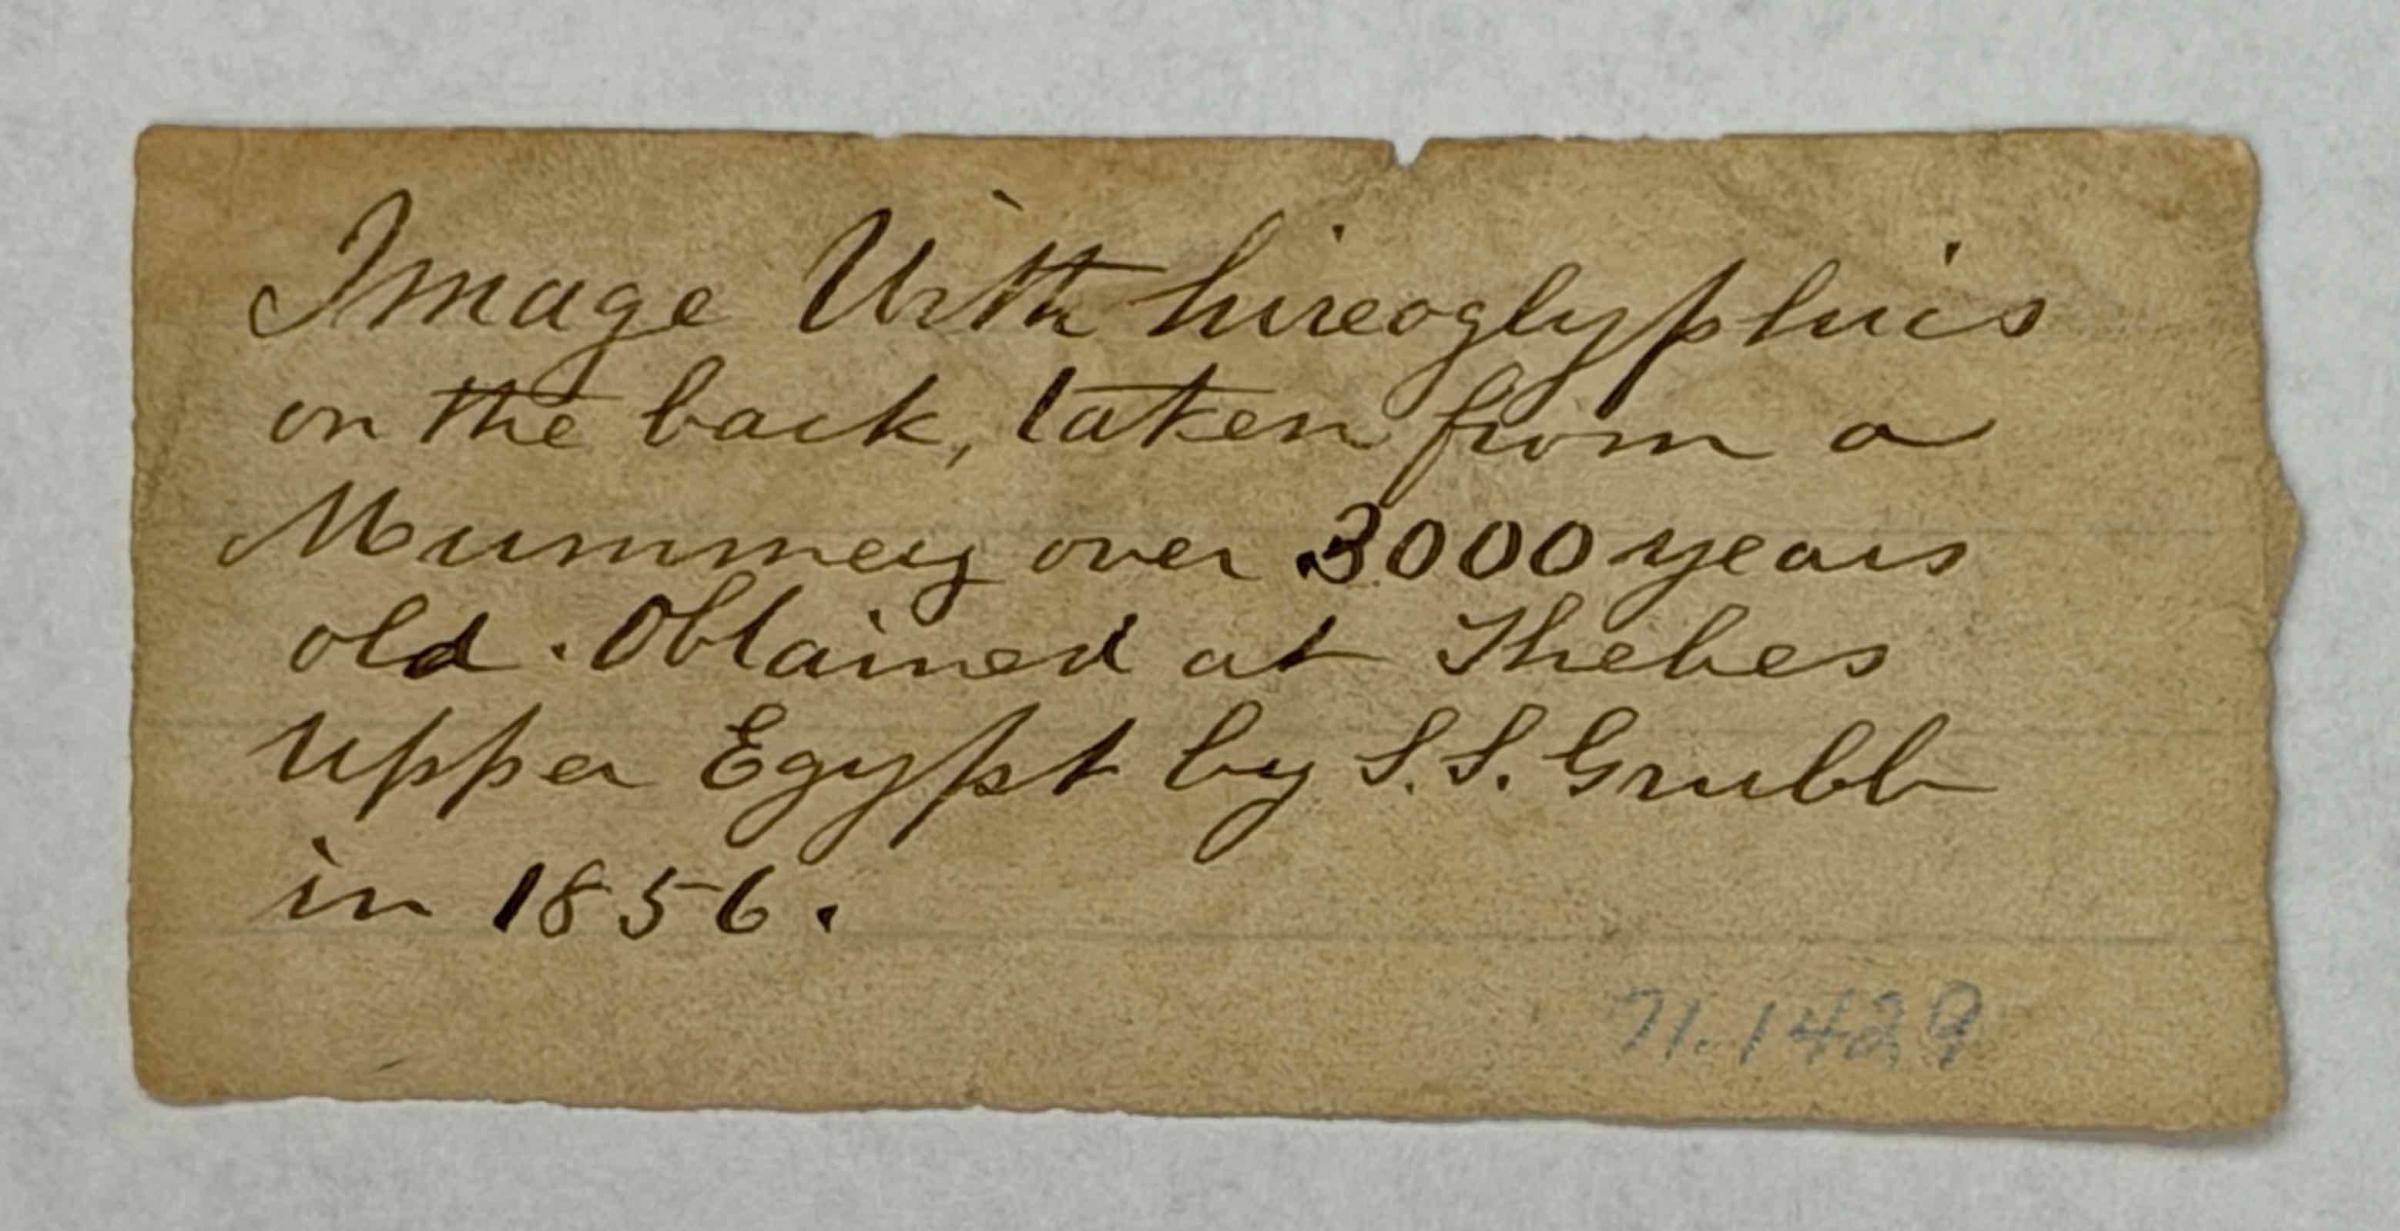 Image With hireoglyphics
on the back, taken from a
Mummey over 3000 years
old. Obtained at Thebes
upper Egypt by S.S. Grubb
in 1856.
71.1429